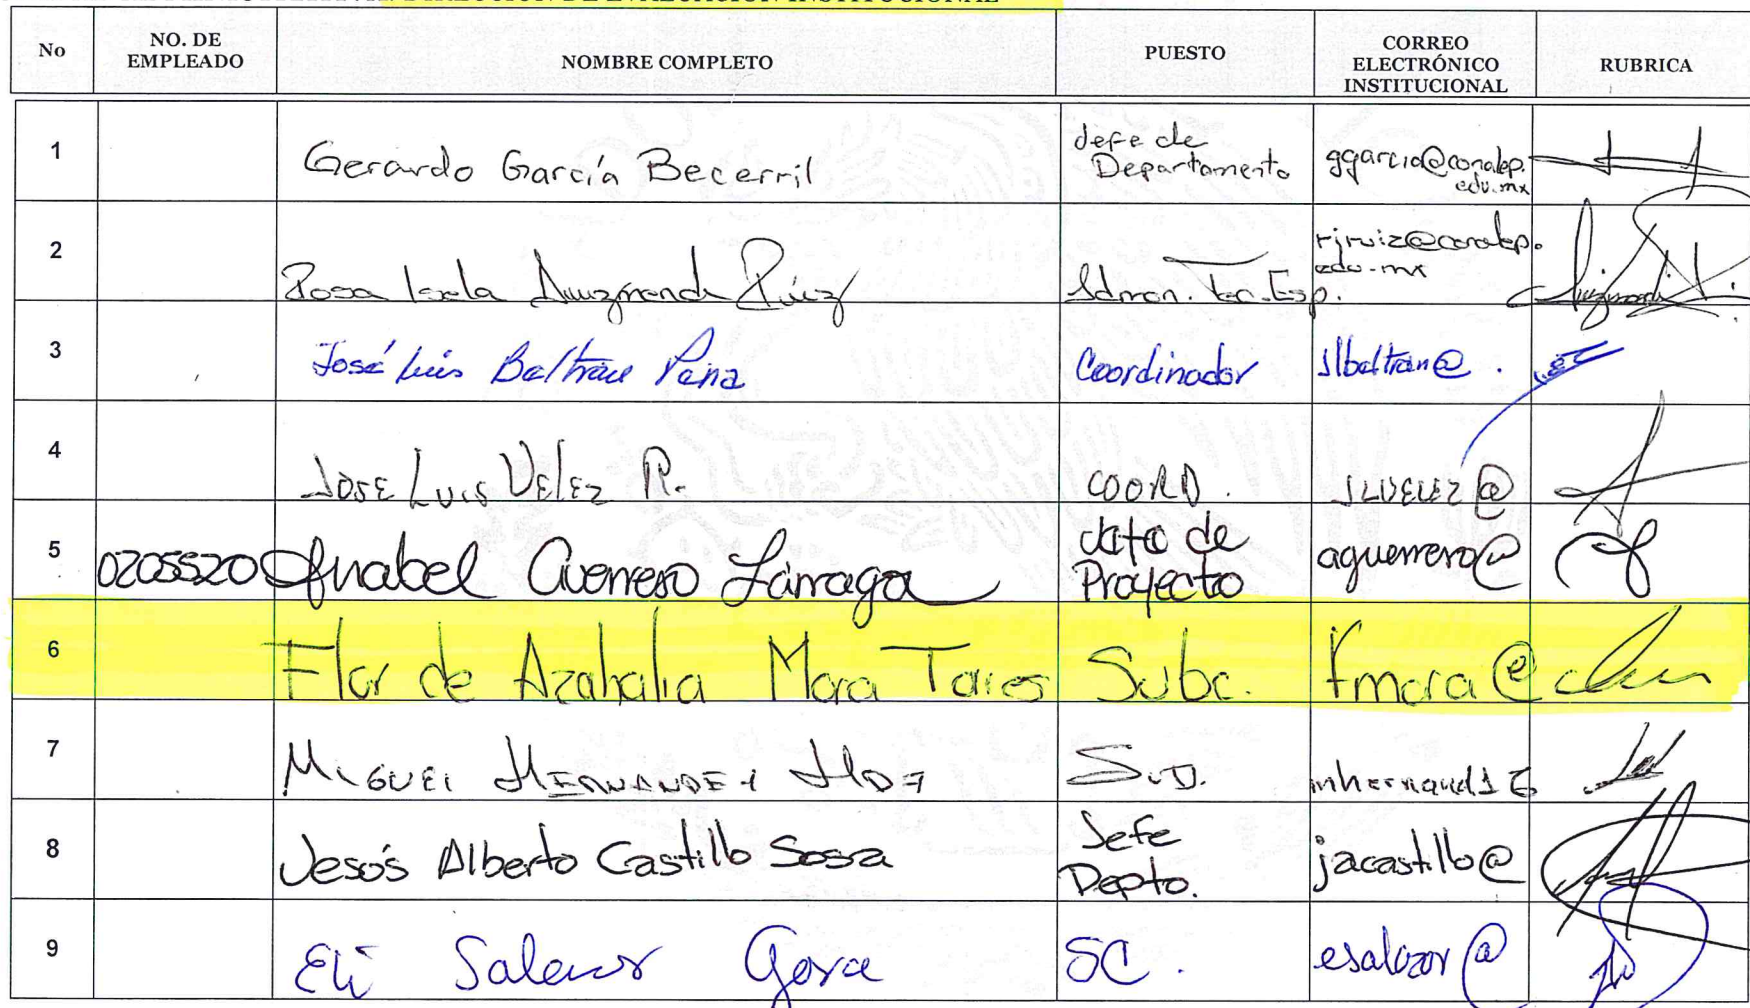 DIRECCIÓN DE EVALUACIÓN INSTITUCIONAL
No NO. DE EMPLEADO NOMBRE COMPLETO PUESTO CORREO ELECTRÓNICO INSTITUCIONAL RUBRICA
1 Gerardo García Becerril Jefe de Departamento ggarcia@conalep.edu.mx
2 Rosa Isela Ruiz rjruiz@conalep.edu.mx Admon. Tec. Esp.
3 José Luis Beltrán Peña Coordinador jlbeltran@
4 JOSE LUIS VELEZ R. COORD. JLVELEZ@
5 0205520 Anabel Guerrero Lárraga Jefe de Proyecto aguerrero@
6 Flor de Azahalia Mora Torres Subc. fmora@
7 MIGUEL HERNANDEZ HDZ S.D. mhernand1@
8 Jesús Alberto Castillo Sosa Jefe Depto. jacastillo@
9 Eli Salazar SC. esalazar@